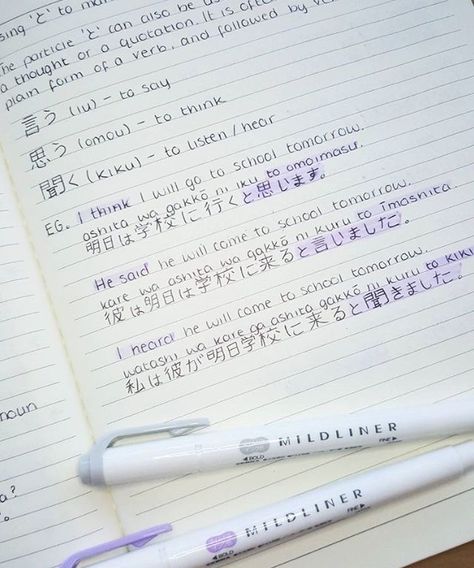 sing 'と' to
The particle 'と' can also be
a thought or a quotation. It is
plain form of a verb, and followed by
言う (iu) - to say
思う (omou) - to think
聞く (kiku) - to listen / hear
EG. I think I will go to school tomorrow.
ashita wa gakkō ni iku to omoimasu.
明日は学校に行くと思います。
He said he will come to school tomorrow.
kare wa ashita wa gakkō ni kuru to īmashita
彼は明日は学校に来ると言いました。
I heard he will come to school tomorrow.
watashi wa kare ga ashita gakkō ni kuru to kiki
私は彼が明日学校に来ると聞きました。
noun
a?
MILDLINER
BOLD
FINE
MILDLINER
BOLD
FINE